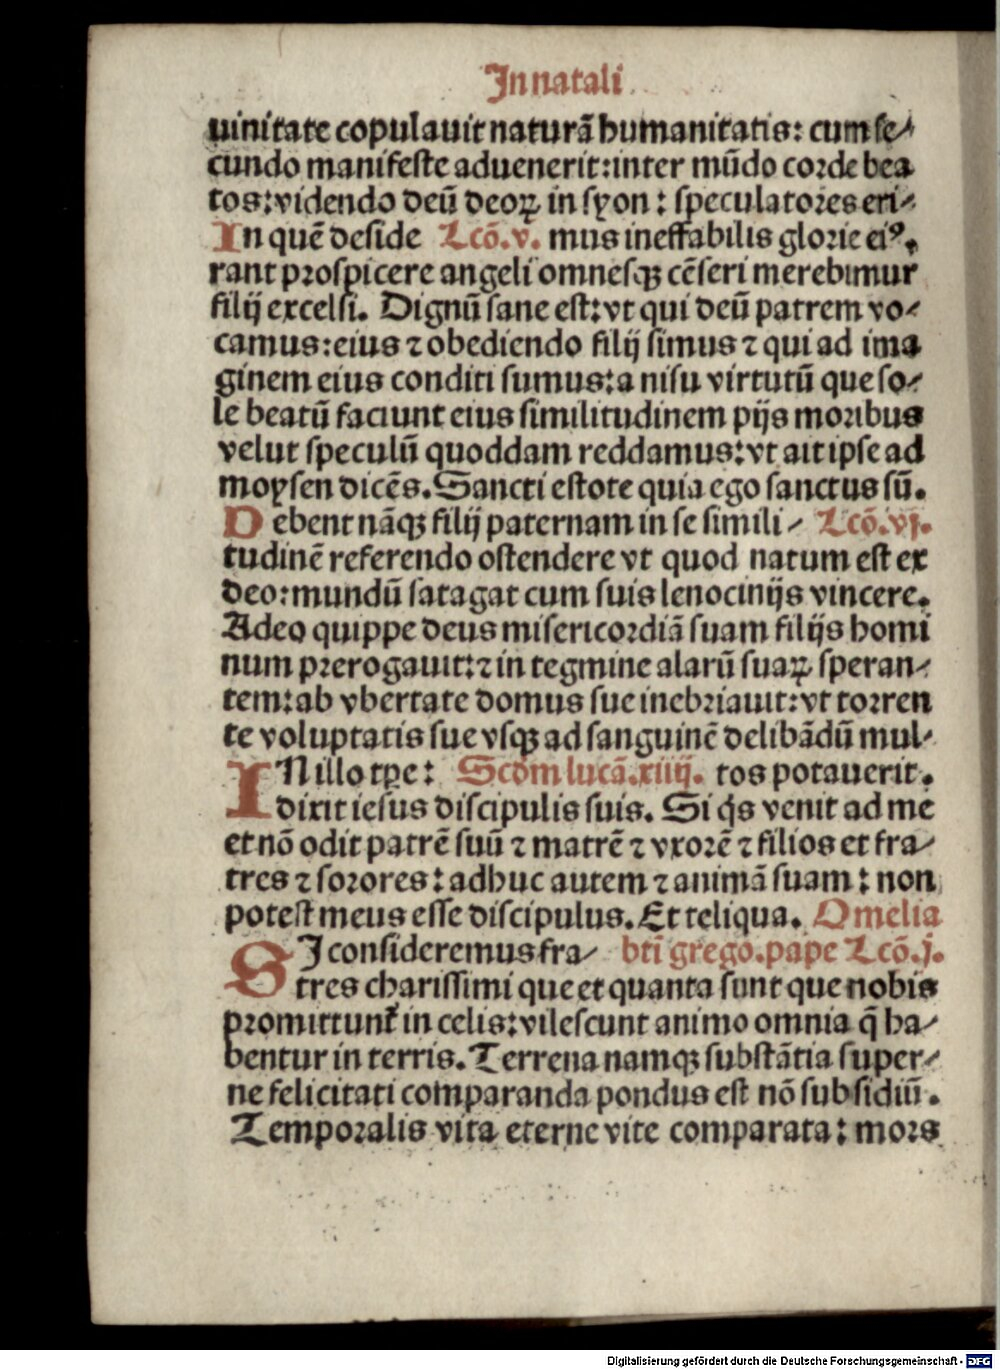 In natali
uinitate copulauit naturā humanitatis: cum se⸗
cundo manifeste aduenerit: inter mūdo corde bea
tos: videndo deū deoꝝ in syon: speculatores eri⸗
In quē deside Lcō.v. mus ineffabilis glorie eiꝰ.
rant prospicere angeli omnesqꝫ cēseri merebimur
filij excelsi. Dignū sane est: vt qui deū patrem vo⸗
camus: eius ⁊ obediendo filij simus ⁊ qui ad ima
ginem eius conditi sumus: a nisu virtutū que so⸗
le beatū faciunt eius similitudinem pijs moribus
velut speculū quoddam reddamus: vt ait ipse ad
moysen dicēs. Sancti estote quia ego sanctus sū.
Debent nāqꝫ filij paternam in se simili⸗ Lcō.vj.
tudinē referendo ostendere vt quod natum est ex
deo: mundū satagat cum suis lenocinijs vincere.
Adeo quippe deus misericordiā suam filijs homi
num prerogauit: ⁊ in tegmine alarū suaꝝ speran⸗
tem: ab vbertate domus sue inebriauit: vt torren
te voluptatis sue vsqꝫ ad sanguinē delibādū mul⸗
IN illo tꝑe: Scdm lucā.xiiij. tos potauerit.
dixit iesus discipulis suis. Si q̇s venit ad me
et nō odit patrē suū ⁊ matrē ⁊ vxorē ⁊ filios et fra⸗
tres ⁊ sorores: adhuc autem ⁊ animā suam: non
potest meus esse discipulus. Et reliqua. Omelia
SI consideremus fra⸗ bti̅ grego. pape Lcō.j.
tres charissimi que et quanta sunt que nobis
promittunt̉ in celis: vilescunt animo omnia q̄ ha⸗
bentur in terris. Terrena namqꝫ substātia super⸗
ne felicitati comparanda pondus est nō subsidiū.
Temporalis vita eterne vite comparata: mors
Digitalisierung gefördert durch die Deutsche Forschungsgemeinschaft - DFG